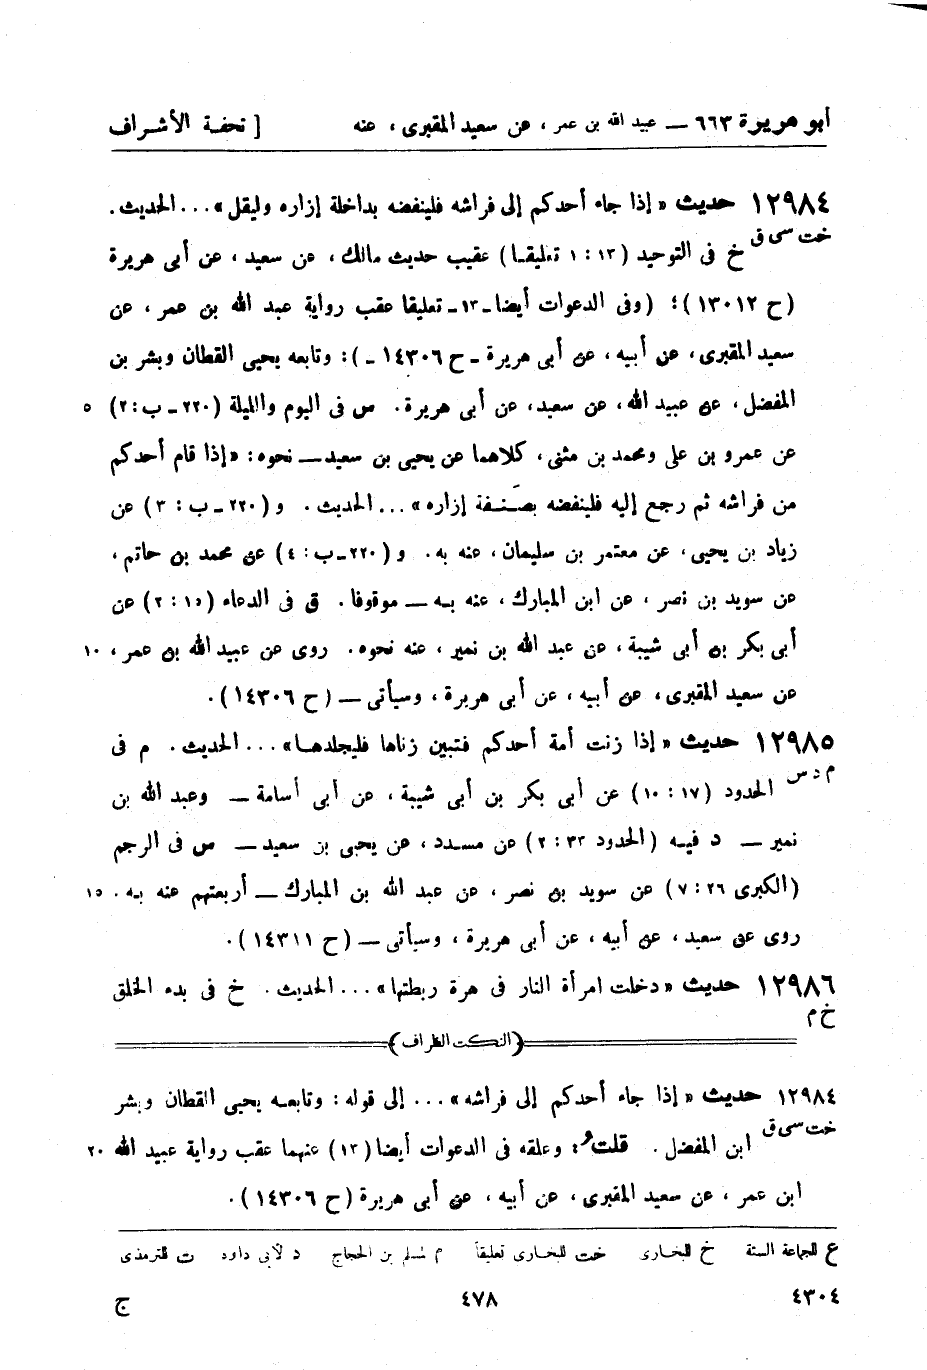 أبو هريرة ٦٦٣ — عبيد الله بن عمر ، عن سعيد المقبرى ، عنه [ تحفة الأشراف
١٢٩٨٤ حديث « إذا جاء أحدكم إلى فراشه فلينفضه بداخلة إزاره وليقل » ... الحديث .
خت سى ق خ فى التوحيد ( ١٣ : ١ تعليقا ) عقيب حديث مالك ، عن سعيد ، عن أبى هريرة
( ح ١٣٠١٢ ) ؛ ( وفى الدعوات أيضا ـ ١٣ ـ تعليقا عقب رواية عبد الله بن عمر ، عن
سعيد المقبرى ، عن أبيه ، عن أبى هريرة ـ ح ١٤٣٠٦ ـ ) : وتابعه يحيى القطان وبشر بن
المفضل ، عن عبيد الله ، عن سعيد ، عن أبى هريرة . س فى اليوم والليلة ( ٢٢٠ ـ ب : ٢ ) ٥
عن عمرو بن على ومحمد بن مثنى ، كلاهما عن يحيى بن سعيد — نحوه : « إذا قام أحدكم
من فراشه ثم رجع إليه فلينفضه بصَنفة إزاره » ... الحديث . و ( ٢٢٠ ـ ب : ٣ ) عن
زياد بن يحيى ، عن معتمر بن سليمان ، عنه به . و ( ٢٢٠ ـ ب : ٤ ) عن محمد بن حاتم ،
عن سويد بن نصر ، عن ابن المبارك ، عنه به — موقوفا . ق فى الدعاء ( ١٥ : ٢ ) عن
أبى بكر بن أبى شيبة ، عن عبد الله بن نمير ، عنه نحوه . روى عن عبيد الله بن عمر ، ١٠
عن سعيد المقبرى ، عن أبيه ، عن أبى هريرة ، وسيأتى — ( ح ١٤٣٠٦ ) .
١٢٩٨٥ حديث « إذا زنت أمة أحدكم فتبين زناها فليجلدها » ... الحديث . م فى
م د س الحدود ( ١٧ : ١٠ ) عن أبى بكر بن أبى شيبة ، عن أبى أسامة — وعبد الله بن
نمير — د فيه ( الحدود ٣٣ : ٢ ) عن مسدد ، عن يحيى بن سعيد — س فى الرجم
( الكبرى ٢٦ : ٧ ) عن سويد بن نصر ، عن عبد الله بن المبارك — أربعتهم عنه به . ١٥
روى عن سعيد ، عن أبيه ، عن أبى هريرة ، وسيأتى — ( ح ١٤٣١١ ) .
١٢٩٨٦ حديث « دخلت امرأة النار فى هرة ربطتها » ... الحديث . خ فى بدء الخلق
خ م
( النكت الظراف )
١٢٩٨٤ حديث « إذا جاء أحدكم إلى فراشه » ... إلى قوله : وتابعه يحيى القطان وبشر
خت سى ق ابن المفضل . قلت : وعلقه فى الدعوات أيضا ( ١٣ ) عنهما عقب رواية عبيد الله ٢٠
ابن عمر ، عن سعيد المقبرى ، عن أبيه ، عن أبى هريرة ( ح ١٤٣٠٦ ) .
ع للجماعة الستة خ للبخارى خت للبخارى تعليقاً م لمسلم بن الحجاج د لأبى داود ت للترمذى
٤٣٠٤ ٤٧٨ ج